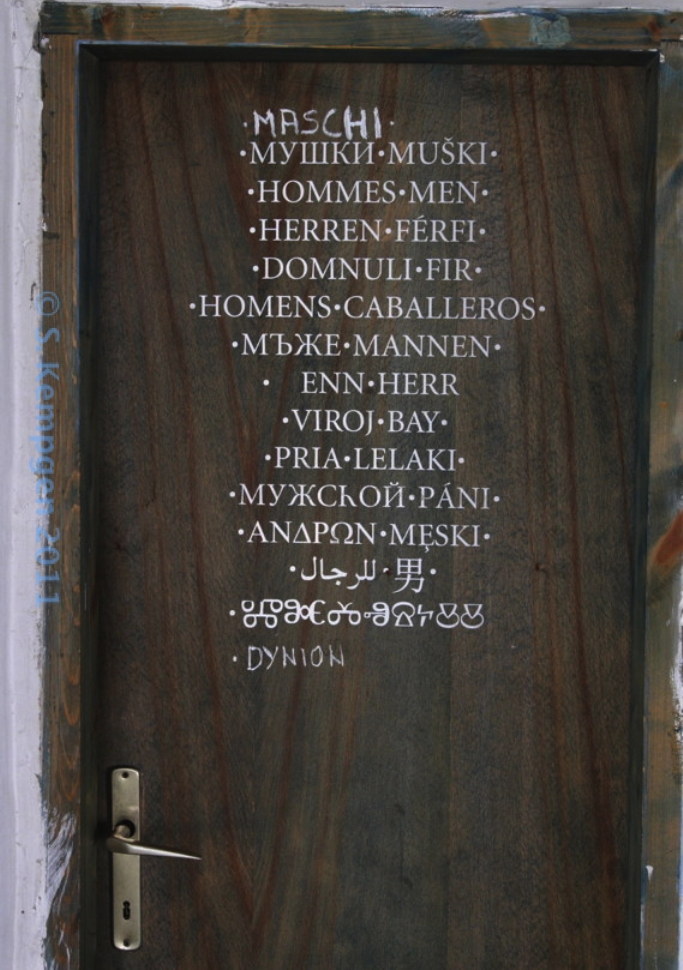 ·MASCHI·
·МУШКИ·MUŠKI·
·HOMMES·MEN·
·HERREN·FÉRFI·
·DOMNULI·FIR·
·HOMENS·CABALLEROS·
·МЪЖЕ·MANNEN·
· ENN·HERR
·VIROJ·BAY·
·PRIA·LELAKI·
·МУЖСҺОЙ·PÁNI·
·ΑΝΔΡΩΝ·MĘSKI·
·للرجال·男·
·DYNION
© S. Kempgen 2011